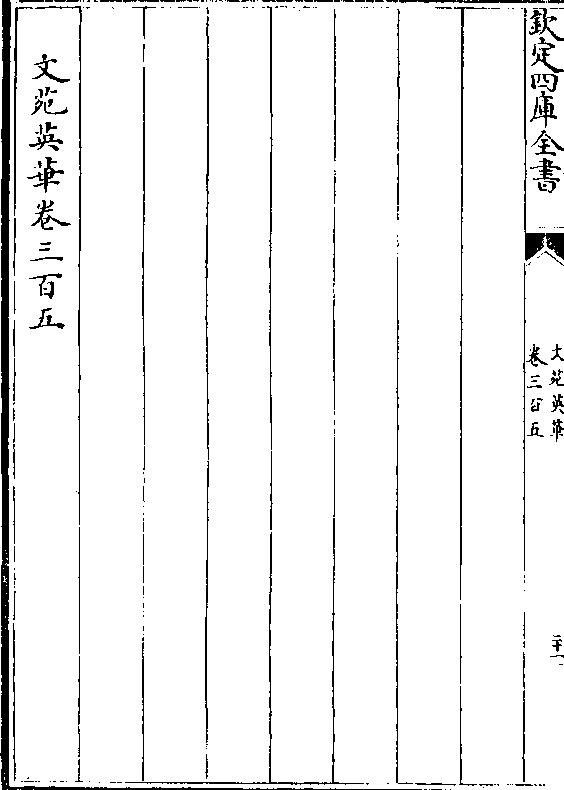 欽定四庫全書
文苑英華
卷三百五
二十一
文苑英華卷三百五